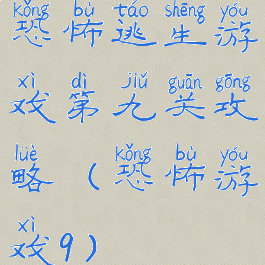 kǒng bù táo shēng yóu
恐怖逃生游
xì dì jiǔ guān gōng
戏第九关攻
lüè kǒng bù yóu
略(恐怖游
xì
戏9)